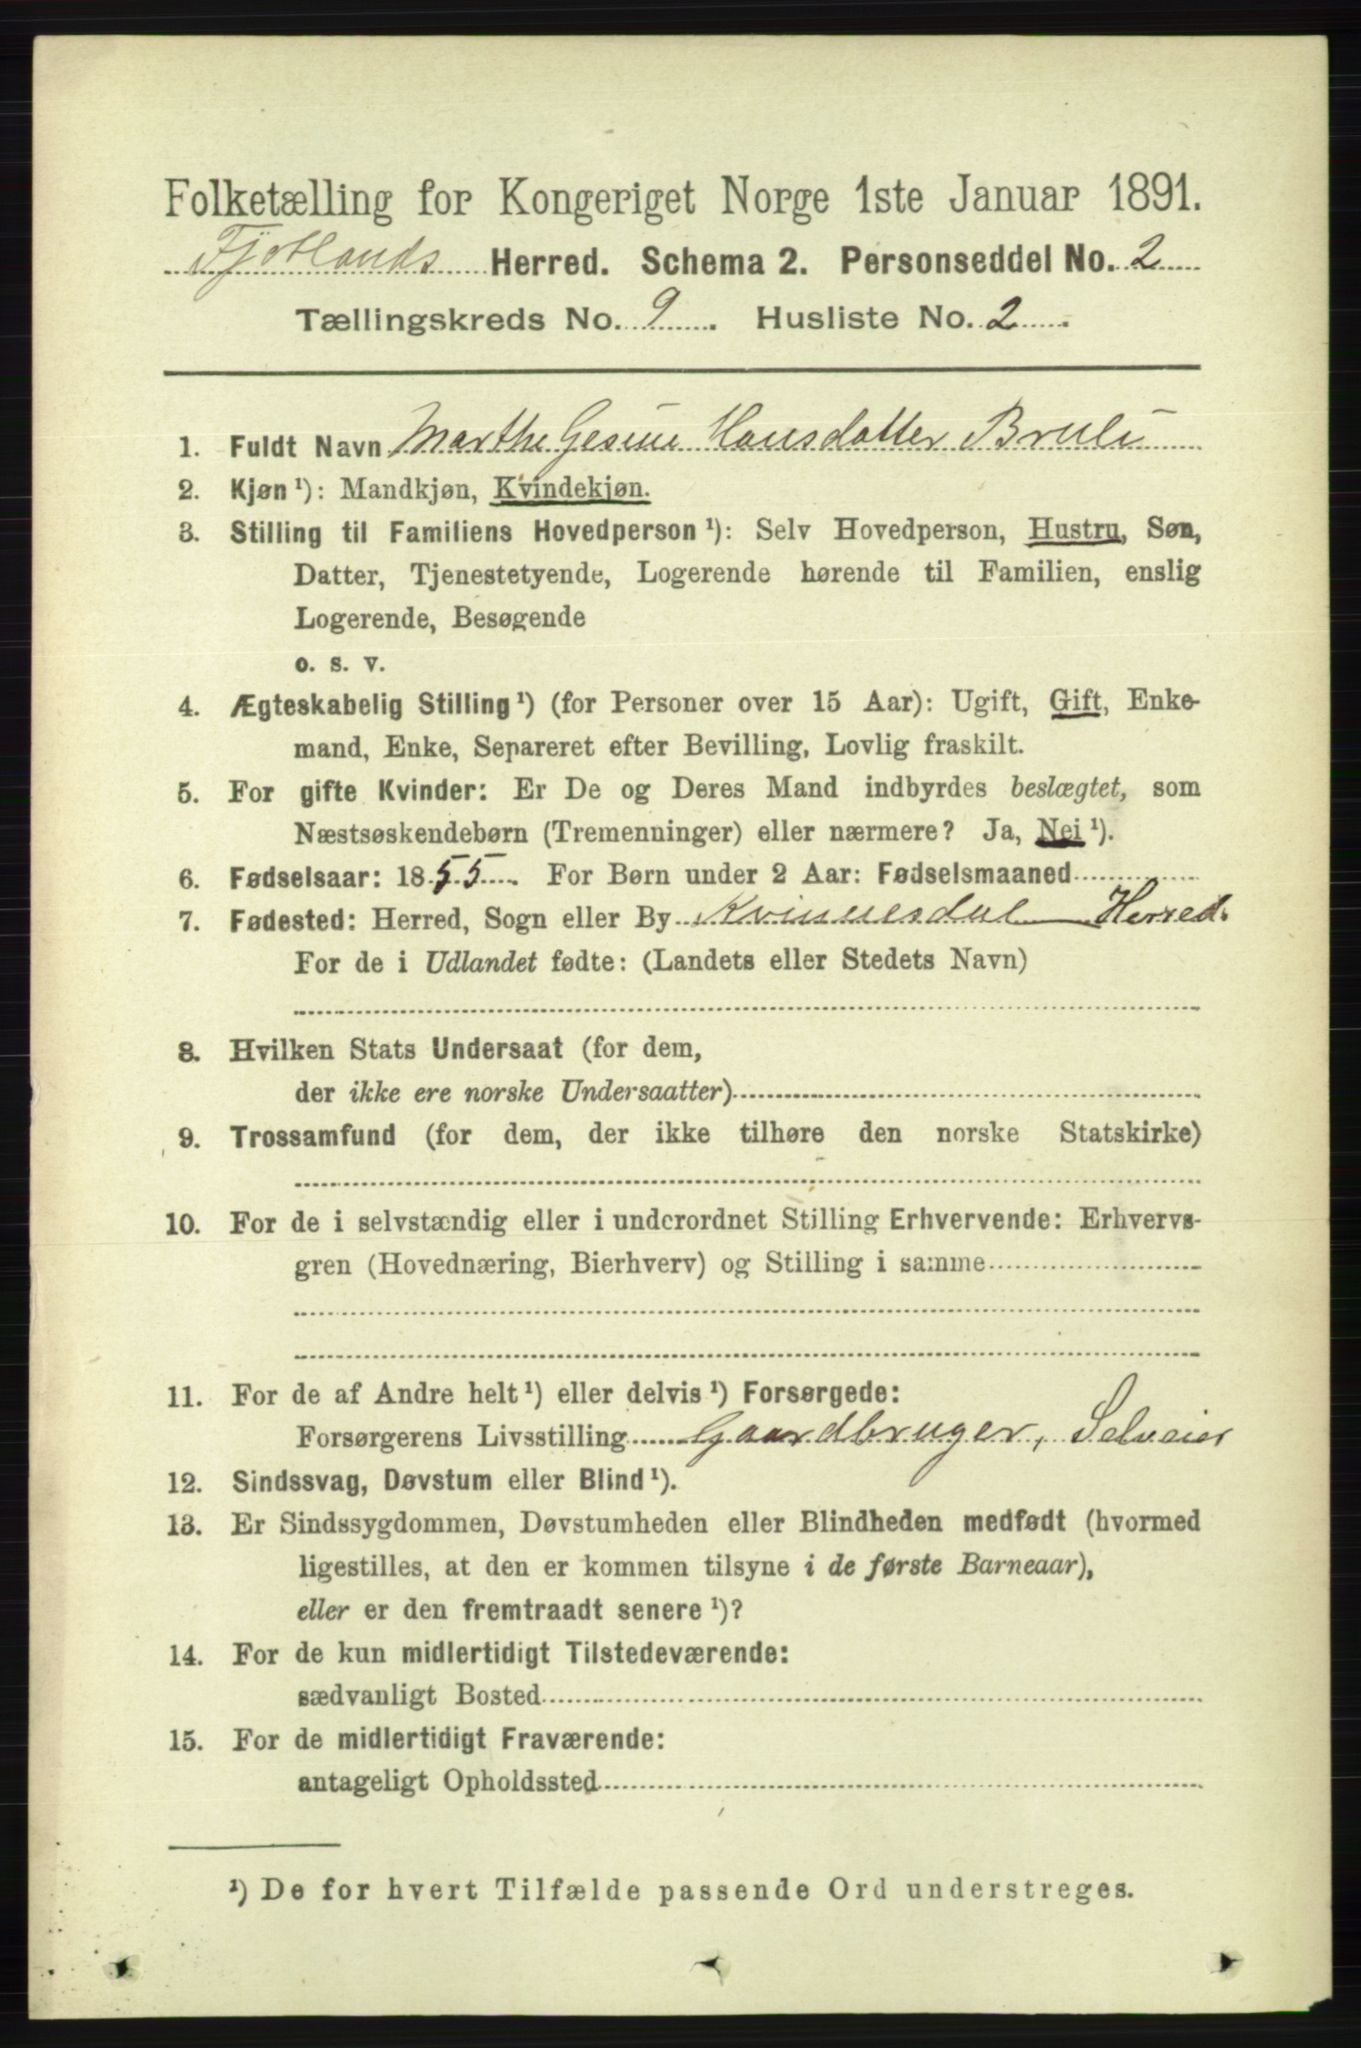 Folketælling for Kongeriget Norge 1ste Januar 1891.
Fjotlands Herred. Schema 2. Personseddel No. 2
Tællingskreds No. 9. Husliste No. 2.
1. Fuldt Navn Marthe Gesine Hansdatter Bruli
2. Kjøn ¹): Mandkjøn, Kvindekjøn.
3. Stilling til Familiens Hovedperson ¹): Selv Hovedperson, Hustru, Søn,
Datter, Tjenestetyende, Logerende hørende til Familien, enslig
Logerende, Besøgende
o. s. v.
4. Ægteskabelig Stilling ¹) (for Personer over 15 Aar): Ugift, Gift, Enke-
mand, Enke, Separeret efter Bevilling, Lovlig fraskilt.
5. For gifte Kvinder: Er De og Deres Mand indbyrdes beslægtet, som
Næstsøskendebørn (Tremenninger) eller nærmere? Ja, Nei ¹).
6. Fødselsaar: 1855. For Børn under 2 Aar: Fødselsmaaned
7. Fødested: Herred, Sogn eller By Kvinnesdal Herred.
For de i Udlandet fødte: (Landets eller Stedets Navn)
8. Hvilken Stats Undersaat (for dem,
der ikke ere norske Undersaatter)
9. Trossamfund (for dem, der ikke tilhøre den norske Statskirke)
10. For de i selvstændig eller i underordnet Stilling Erhvervende: Erhvervs-
gren (Hovednæring, Bierhverv) og Stilling i samme
11. For de af Andre helt ¹) eller delvis ¹) Forsørgede:
Forsørgerens Livsstilling Gaardbruger, Selveier
12. Sindssvag, Døvstum eller Blind ¹).
13. Er Sindssygdommen, Døvstumheden eller Blindheden medfødt (hvormed
ligestilles, at den er kommen tilsyne i de første Barneaar),
eller er den fremtraadt senere ¹)?
14. For de kun midlertidigt Tilstedeværende:
sædvanligt Bosted
15. For de midlertidigt Fraværende:
antageligt Opholdssted
¹) De for hvert Tilfælde passende Ord understreges.